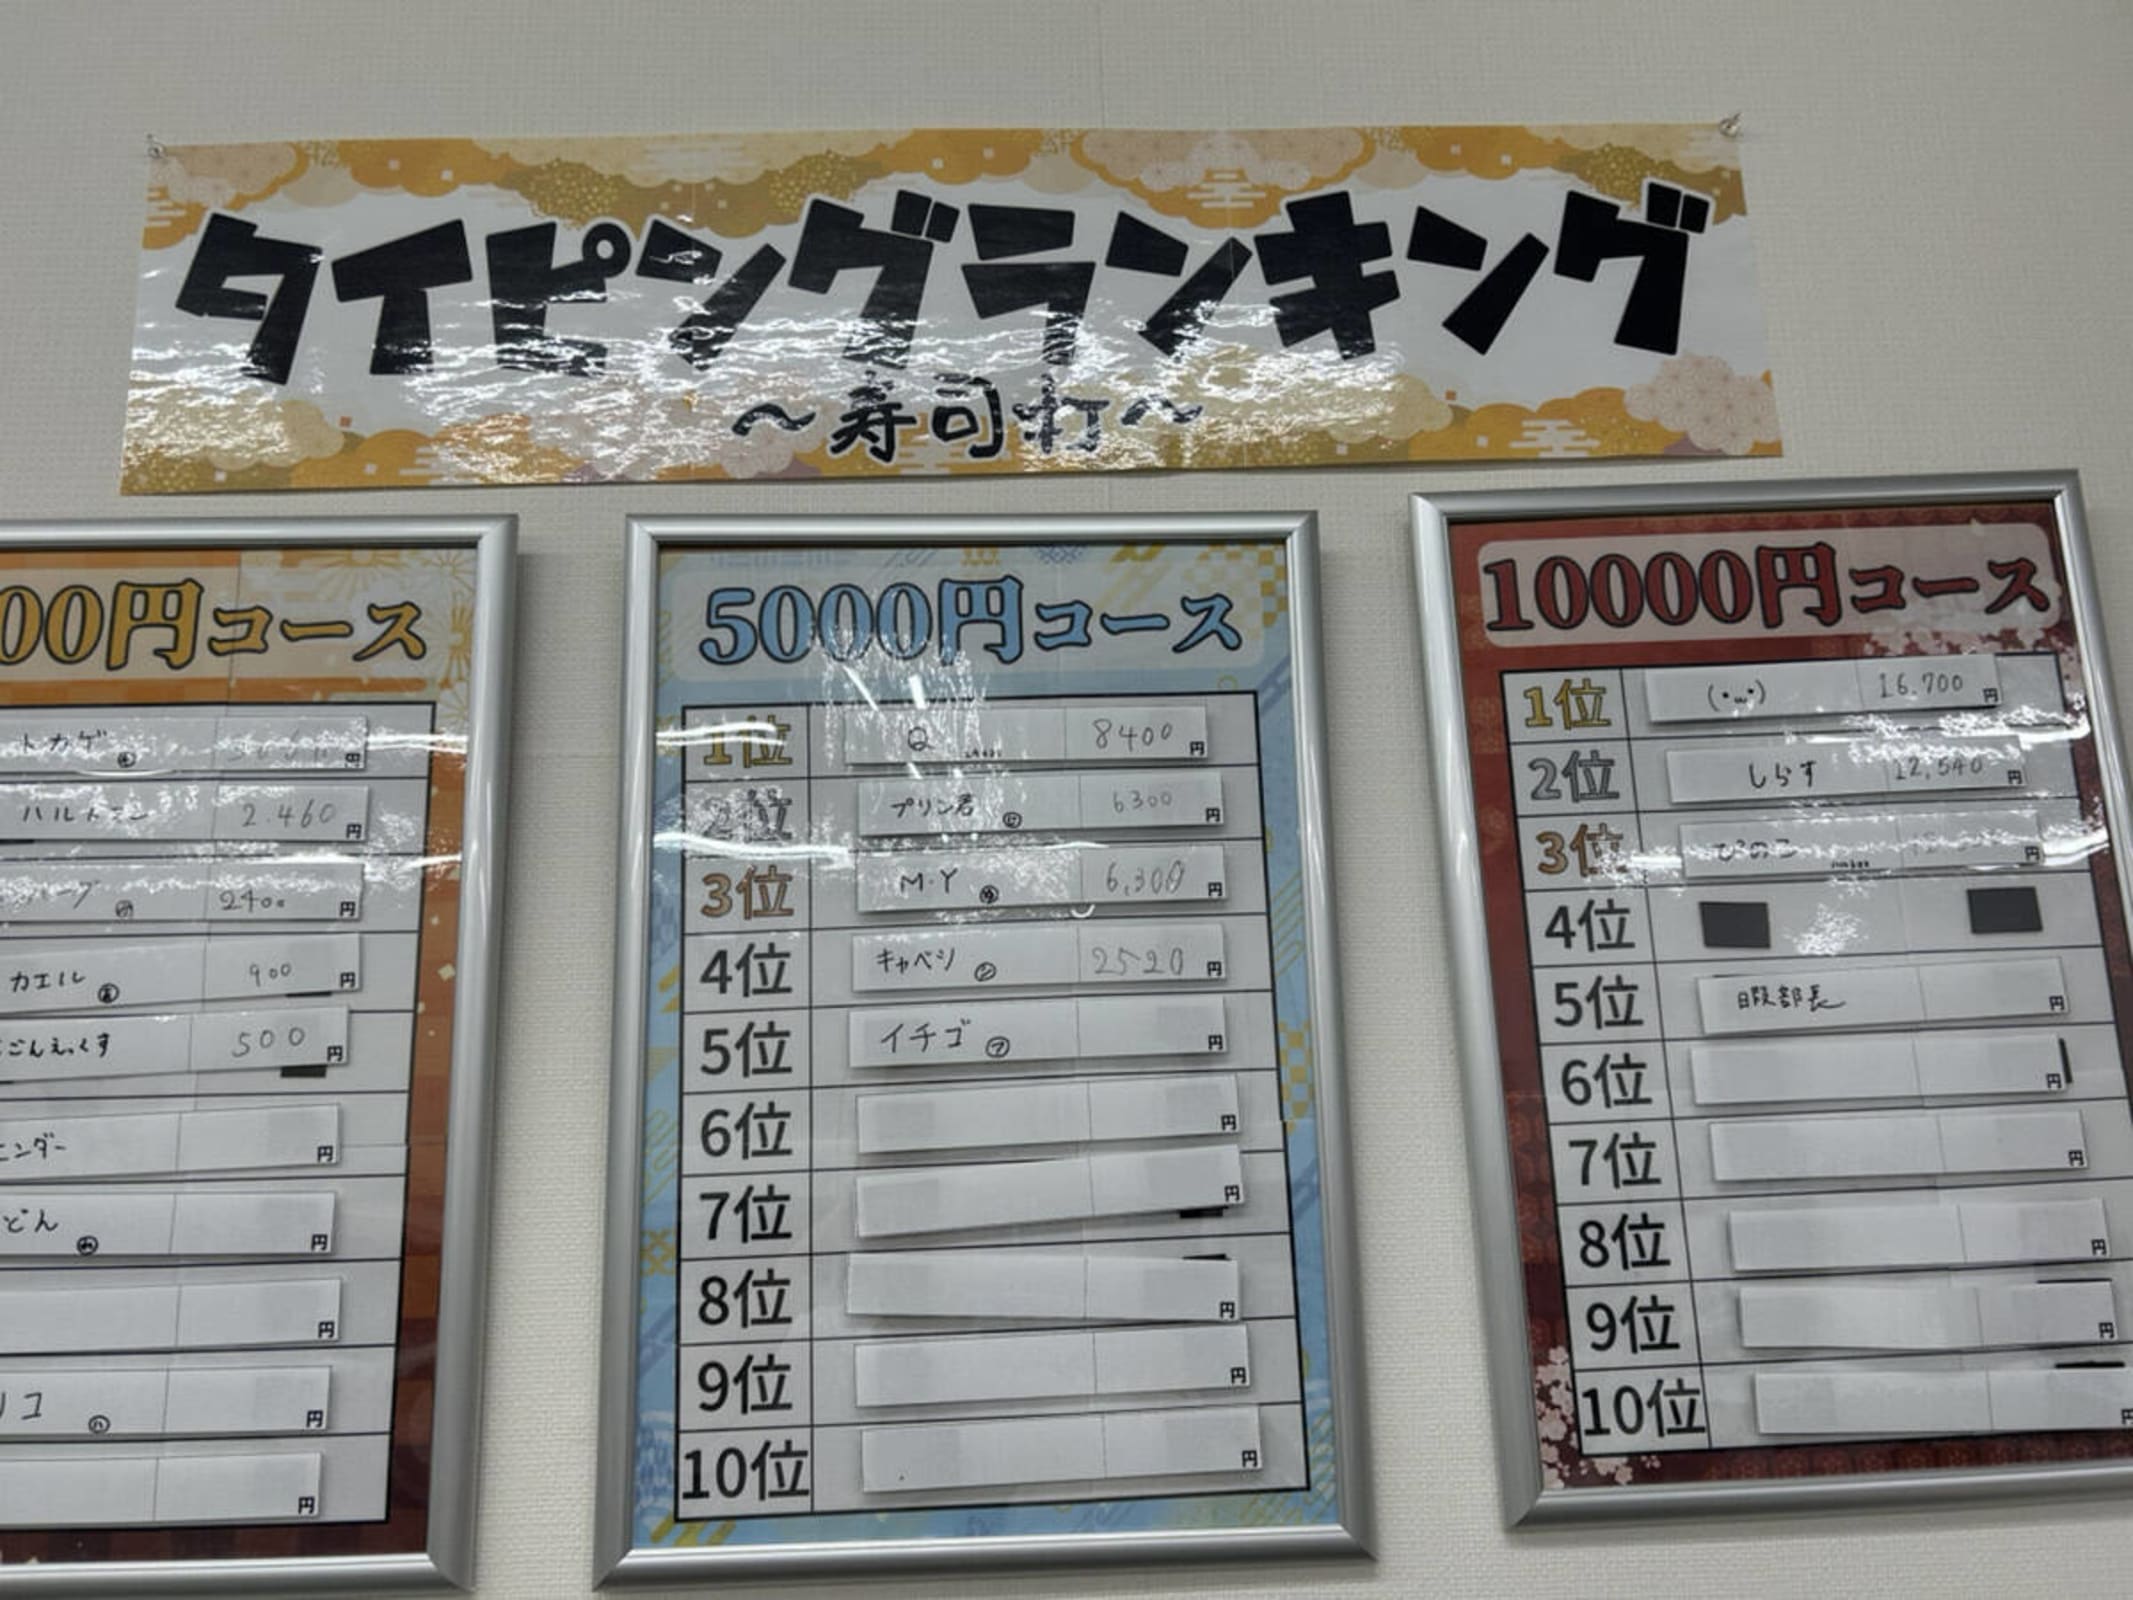 タイピングランキング
～寿司打～
00円コース
トカゲ 円
ハルトマン 2.460 円
2400 円
カエル 900 円
ごんえっくす 500 円
エンダー 円
どん 円
円
リコ 円
円
5000円コース
1位 Q 8400 円
2位 プリン君 6300 円
3位 M・Y 6,300 円
4位 キャベツ 2520 円
5位 イチゴ ㋐ 円
6位 円
7位 円
8位 円
9位 円
10位 円
10000円コース
1位 (・ω・) 16,700 円
2位 しらす 12,540 円
3位 ぴのこ 円
4位
5位 暇部長 円
6位 円
7位 円
8位 円
9位 円
10位 円